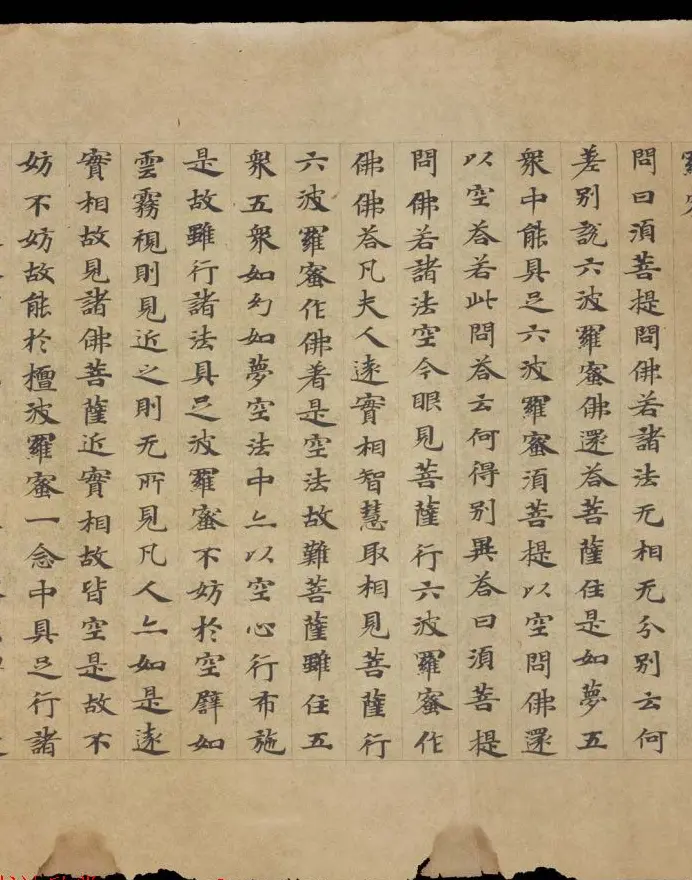 羅蜜
問曰須菩提問佛若諸法无相无分別云何
差別說六波羅蜜佛還荅菩薩住是如夢五
衆中能具足六波羅蜜須菩提以空問佛還
以空荅若此問荅云何得別異荅曰須菩提
問佛若諸法空今眼見菩薩行六波羅蜜作
佛佛荅凡夫人遠實相智慧取相見菩薩行
六波羅蜜作佛著是空法故難菩薩雖住五
衆五衆如幻如夢空法中亦以空心行布施
是故雖行諸法具足波羅蜜不妨於空譬如
雲霧視則見近之則无所見凡人亦如是遠
實相故見諸佛菩薩近實相故皆空是故不
妨不妨故能於檀波羅蜜一念中具足行諸